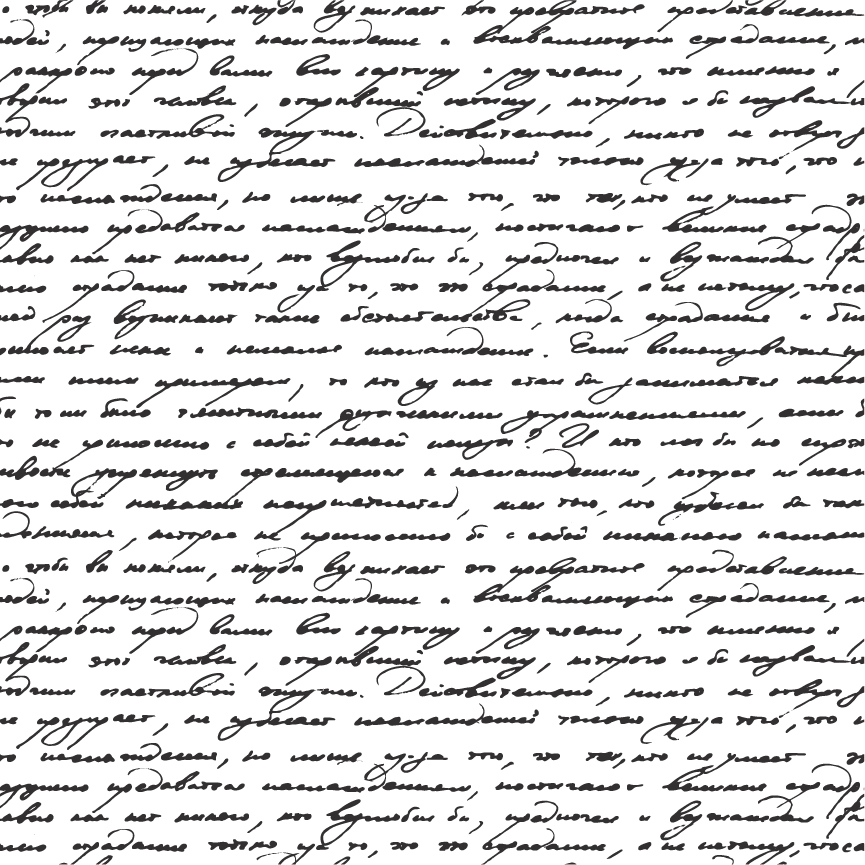 чтобы вы поняли, откуда возникает это превратное представление
людей, порицающих наслаждение и восхваляющих страдание,
раскрою перед вами всю картину и разъясню, что именно
говорил этот человек, открывший истину, которого я бы назвал
счастливой жизни. Действительно, никто не отвергает,
не презирает, не избегает наслаждений только из-за того, что
наслаждения, но лишь из-за того, что тех, кто не умеет
разумно предаваться наслаждениям, постигают великие
равно как нет никого, кто возлюбил бы, предпочел и возжаждал бы
само страдание только за то, что это страдание, а не потому, что
иной раз возникают такие обстоятельства, когда страдания и
приносят некое и немалое наслаждение. Если воспользоваться
самым примером, то кто из нас стал бы заниматься
бы то ни было тягостными физическими упражнениями, если
не приносило с собой некой пользы? И кто мог бы по
справедливости упрекнуть стремящегося к наслаждению, которое не
с собой никаких неприятностей, или того, кто избегал бы
наслаждения, которое не приносило бы с собой никакого
чтобы вы поняли, откуда возникает это превратное представление
людей, порицающих наслаждение и восхваляющих страдание,
раскрою перед вами всю картину и разъясню, что именно
говорил этот человек, открывший истину, которого я бы назвал
счастливой жизни. Действительно, никто не отвергает,
не презирает, не избегает наслаждений только из-за того, что
наслаждения, но лишь из-за того, что тех, кто не умеет
разумно предаваться наслаждениям, постигают великие
равно как нет никого, кто возлюбил бы, предпочел и возжаждал бы
само страдание только за то, что это страдание, а не потому, что